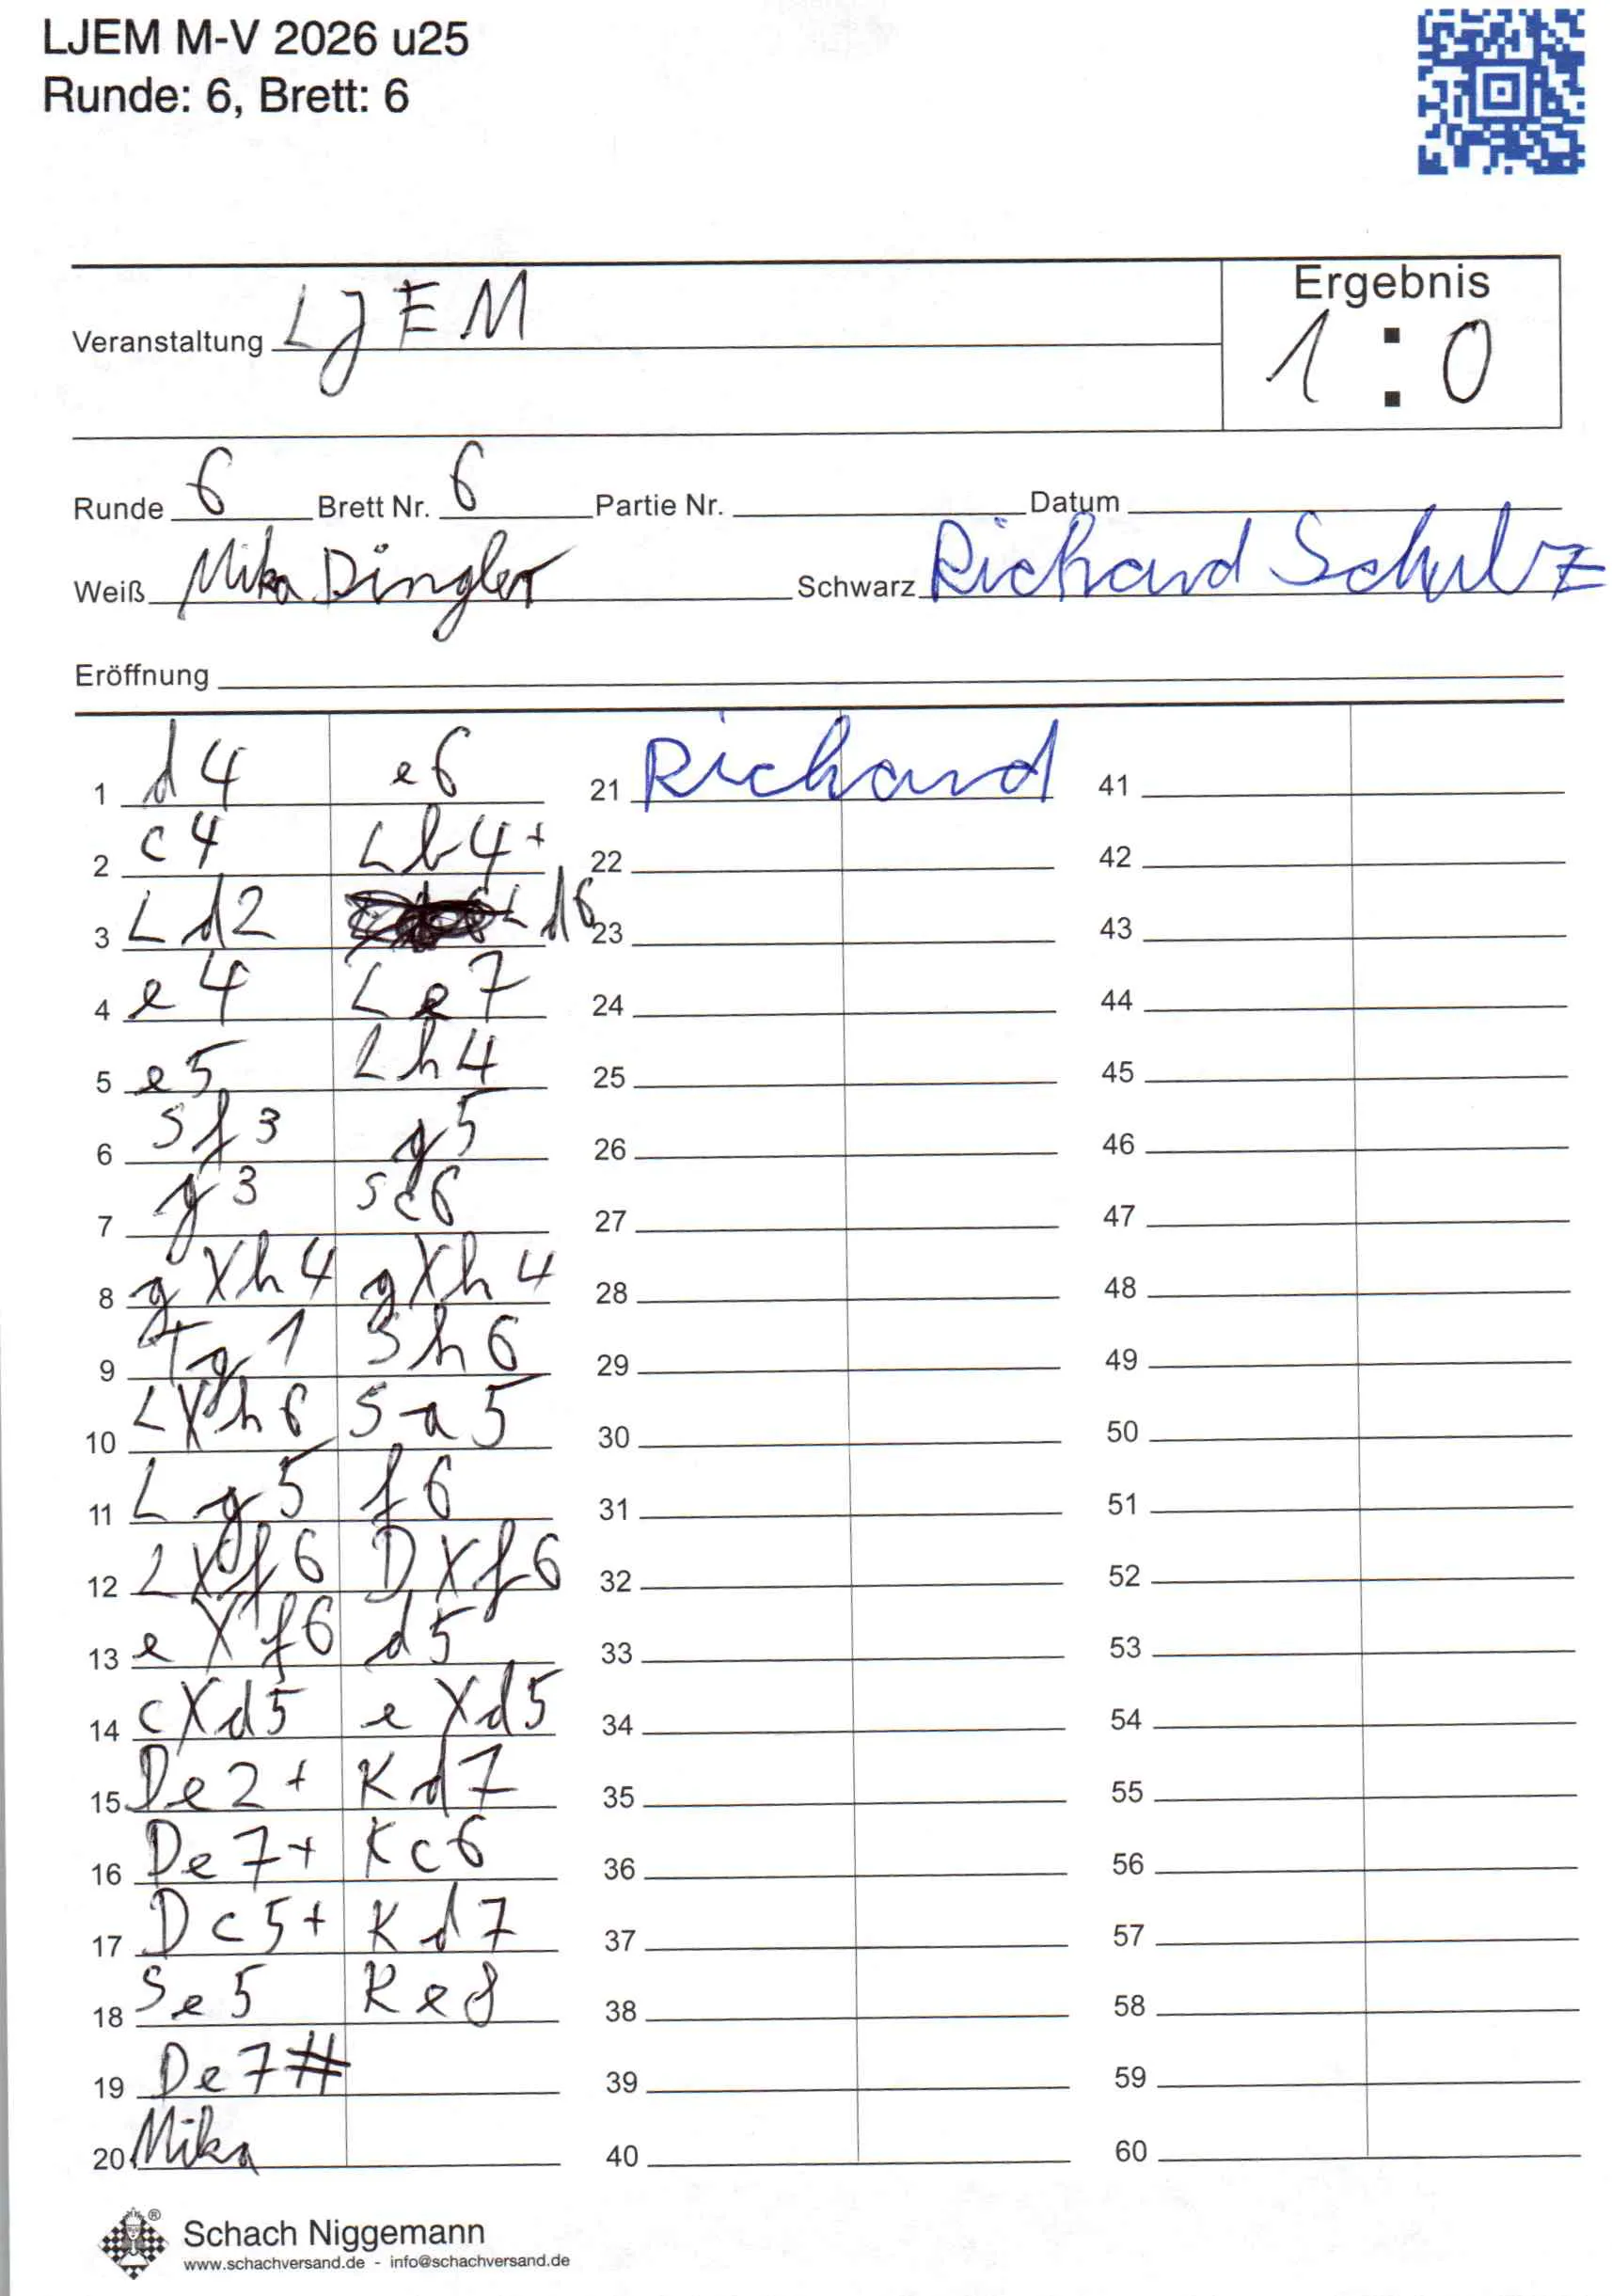 LJEM M-V 2026 u25
Runde: 6, Brett: 6
Ergebnis
Veranstaltung LJEM
1 : 0
Runde 6 Brett Nr. 6 Partie Nr. Datum
Weiß Mika Dingler Schwarz Richard Schulz
Eröffnung
1 d4 e6
2 c4 Lb4+
3 Ld2 Ld6
4 e4 Le7
5 e5 Lh4
6 Sf3 g5
7 g3 Sc6
8 gXh4 gXh4
9 Tg1 Sh6
10 LXh6 Sa5
11 Lg5 f6
12 LXf6 DXf6
13 eXf6 d5
14 cXd5 eXd5
15 De2+ Kd7
16 De7+ Kc6
17 Dc5+ Kd7
18 Se5 Ke8
19 De7#
20 Mika
21 Richard
22
23
24
25
26
27
28
29
30
31
32
33
34
35
36
37
38
39
40
41
42
43
44
45
46
47
48
49
50
51
52
53
54
55
56
57
58
59
60
Schach Niggemann
www.schachversand.de - info@schachversand.de